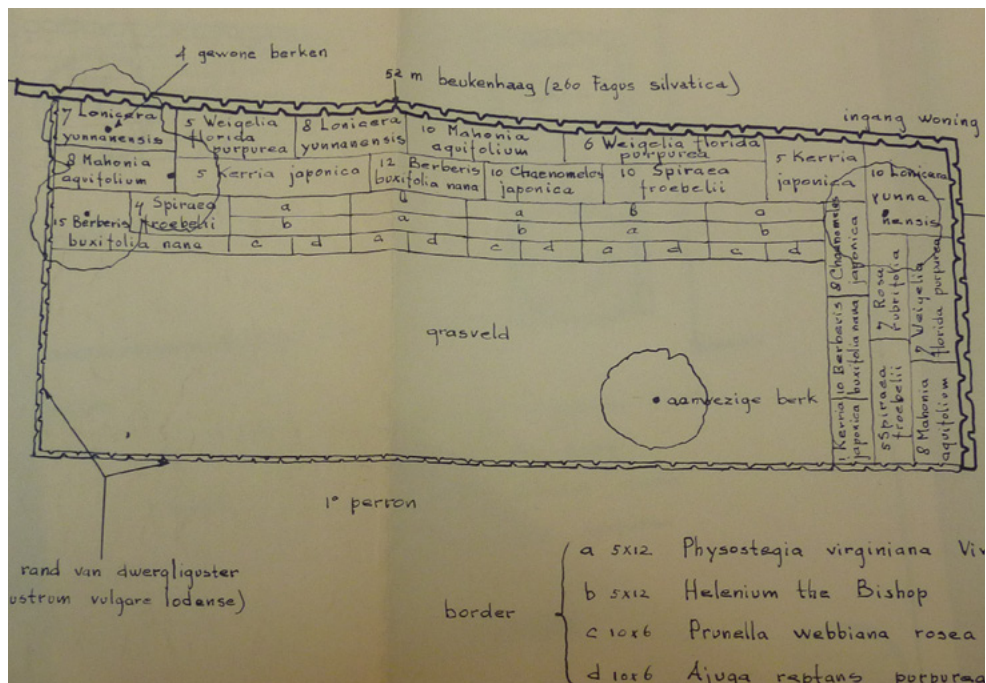 4 gewone berken
52 m beukenhaag (260 Fagus silvatica)
ingang woning
7 Lonicara
yunnanensis
5 Weigelia
florida
purpurea
8 Lonicara
yunnanensis
10 Mahonia
aquifolium
6 Weigelia florida
purpurea
5 Kerria
japonica
10 Lonicara
yunna
nensis
8 Mahonia
aquifolium
5 Kerria japonica
12 Berberis
buxifolia nana
10 Chaenomeles
japonica
10 Spiraea
froebelii
15 Berberis
buxifolia nana
4 Spiraea
froebelii
a b a b a
b a b a b
c d a d c d a d c d
8 Chaenomeles
japonica
7 Rosa
rubrifolia
9 Weigelia
florida purpurea
10 Berberis
buxifolia nana
1 Kerria
japonica
5 Spiraea
froebelii
8 Mahonia
aquifolium
grasveld
aanwezige berk
1° perron
rand van dwergliguster
ustrum vulgare lodense)
border
a 5x12 Physostegia virginiana Viv
b 5x12 Helenium the Bishop
c 10x6 Prunella webbiana rosea
d 10x6 Ajuga reptans purpurea